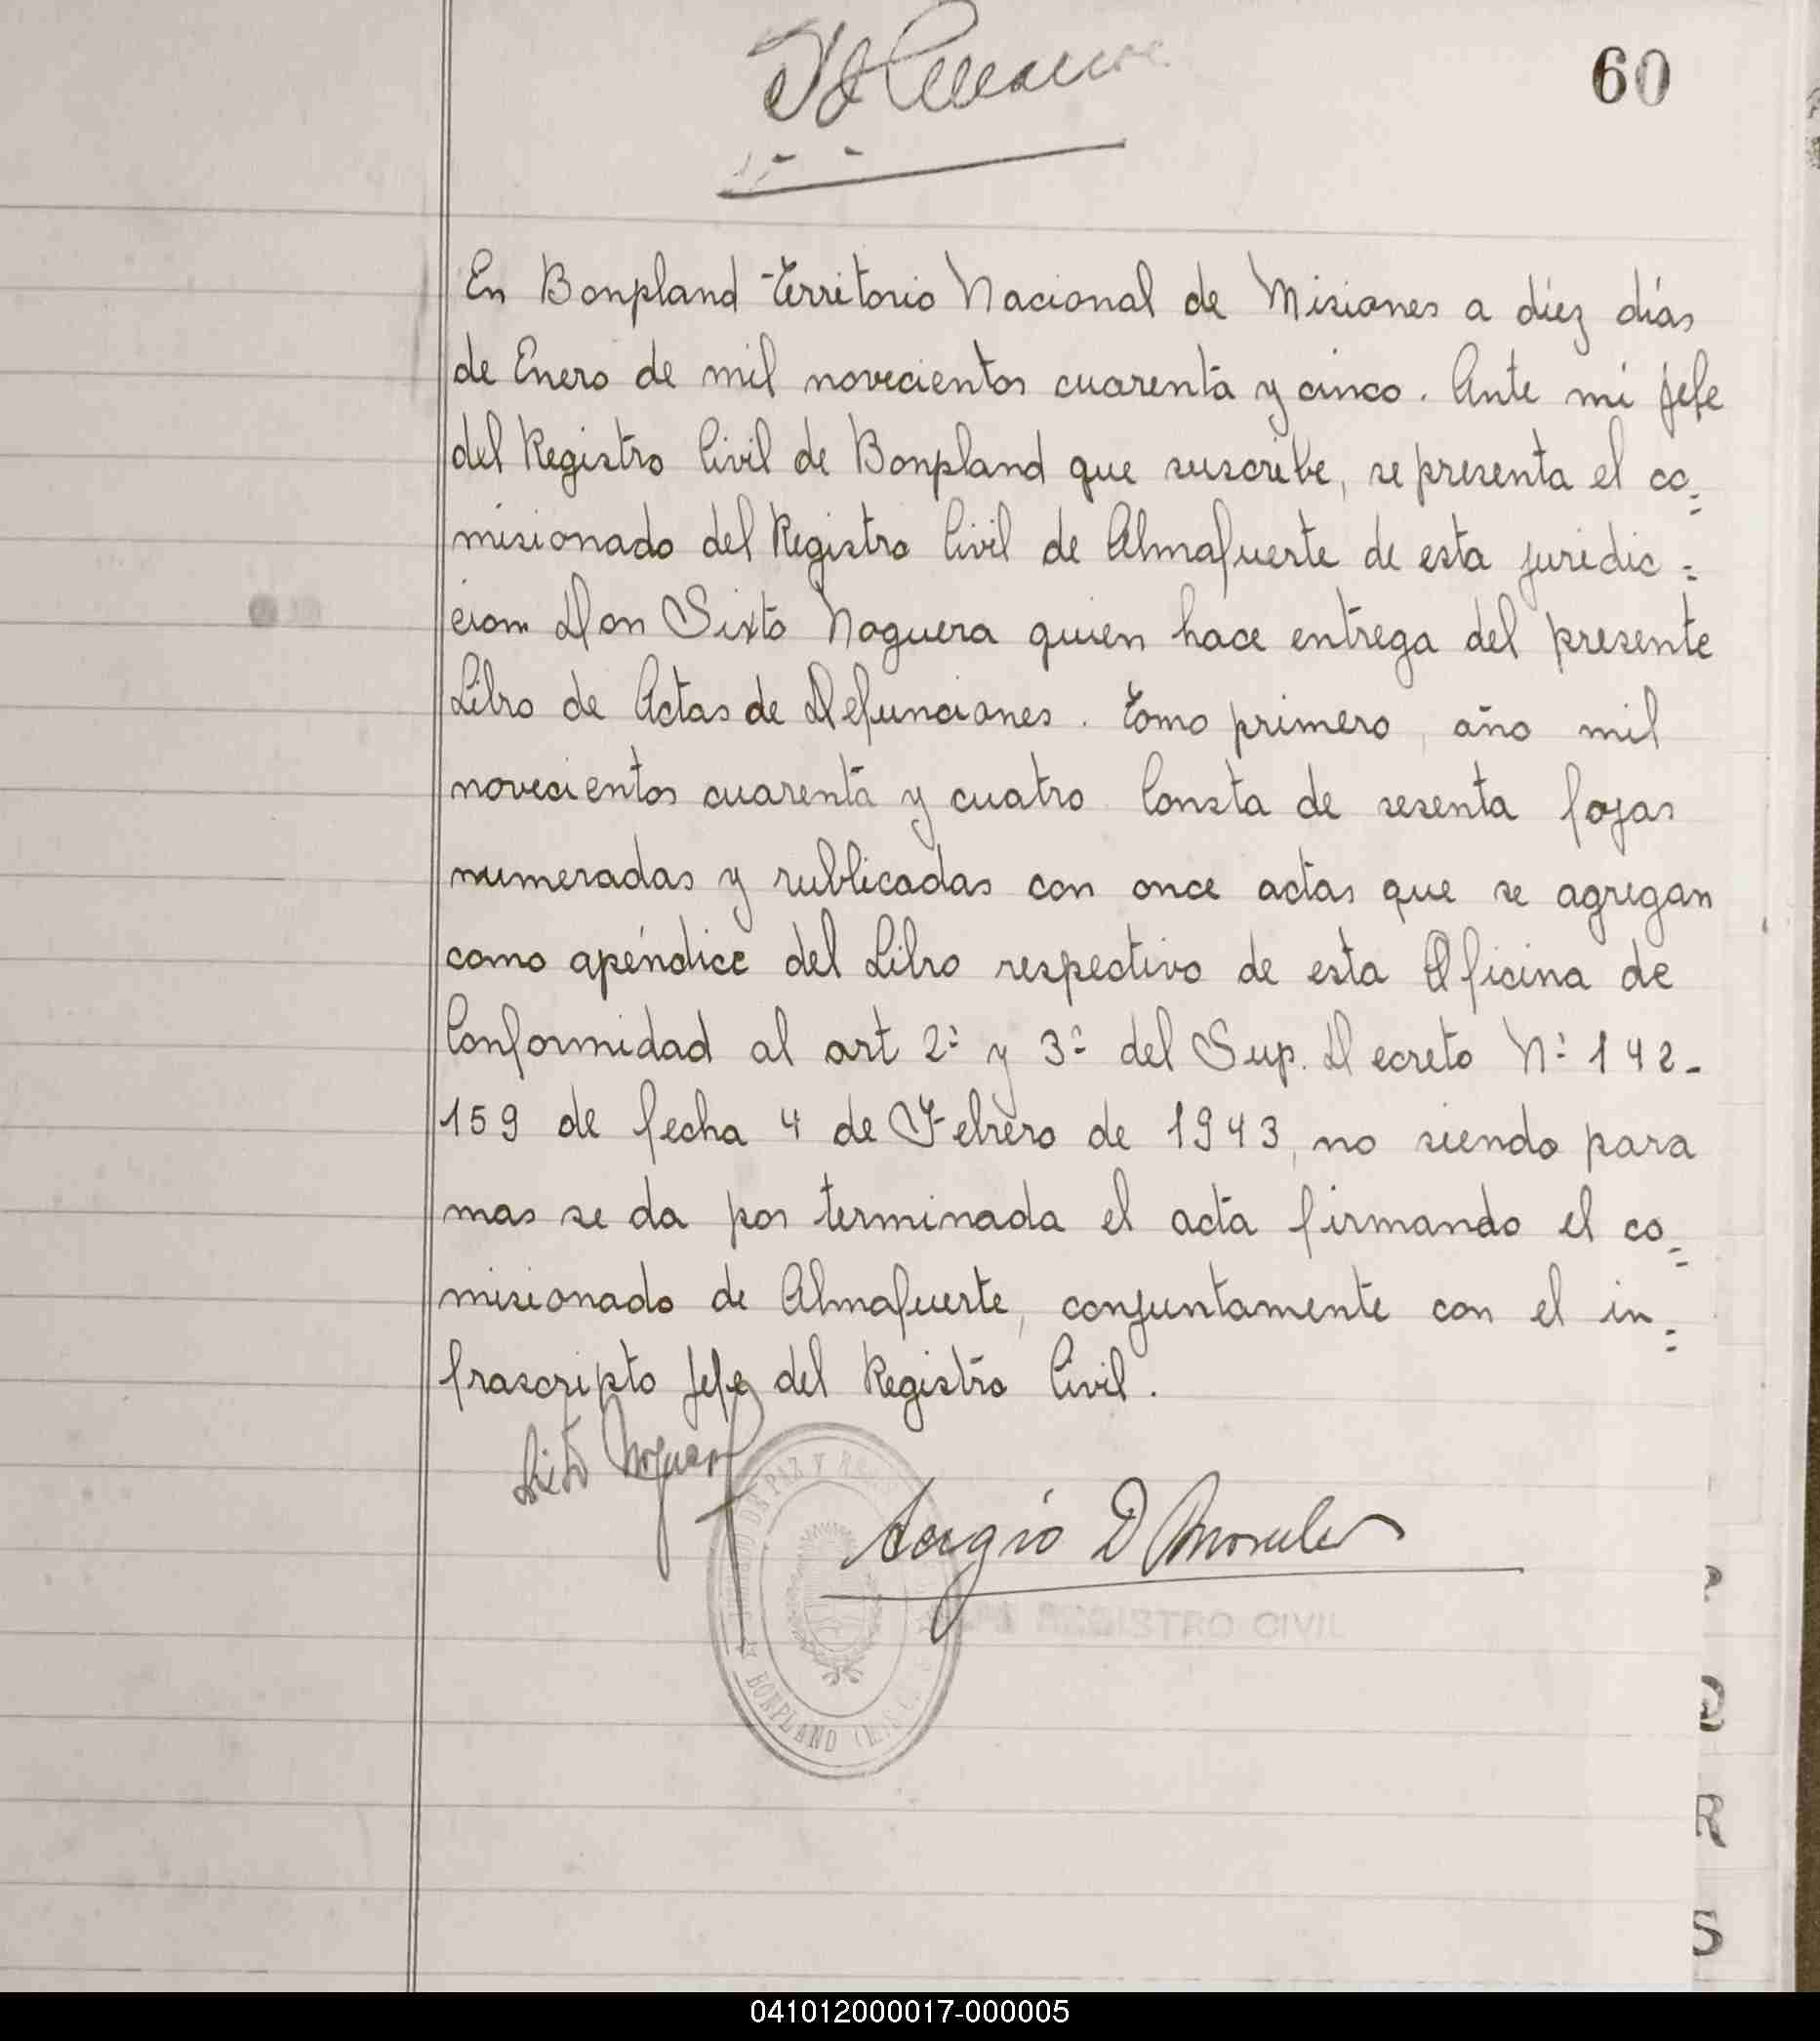 60
En Bonpland Territorio Nacional de Misiones a diez días
de Enero de mil novecientos cuarenta y cinco. Ante mi jefe
del Registro Civil de Bonpland que suscribe, se presenta el co=
misionado del Registro Civil de Almafuerte de esta juridic=
cion Don Sixto Noguera quien hace entrega del presente
Libro de Actas de Defunciones. Tomo primero, año mil
novecientos cuarenta y cuatro Consta de sesenta fojas
numeradas y rublicadas con once actas que se agregan
como apéndice del Libro respectivo de esta Oficina de
Conformidad al art 2º y 3º del Sup. Decreto Nº 142-
159 de fecha 4 de Febrero de 1943, no siendo para
mas se da por terminada el acta firmando el co=
misionado de Almafuerte, conjuntamente con el in=
frascripto jefe del Registro Civil.
Sixto Noguera
Sergio D Morales
REGISTRO CIVIL
DE PAZ Y
BONPLAND
P
Q
R
S
041012000017-000005